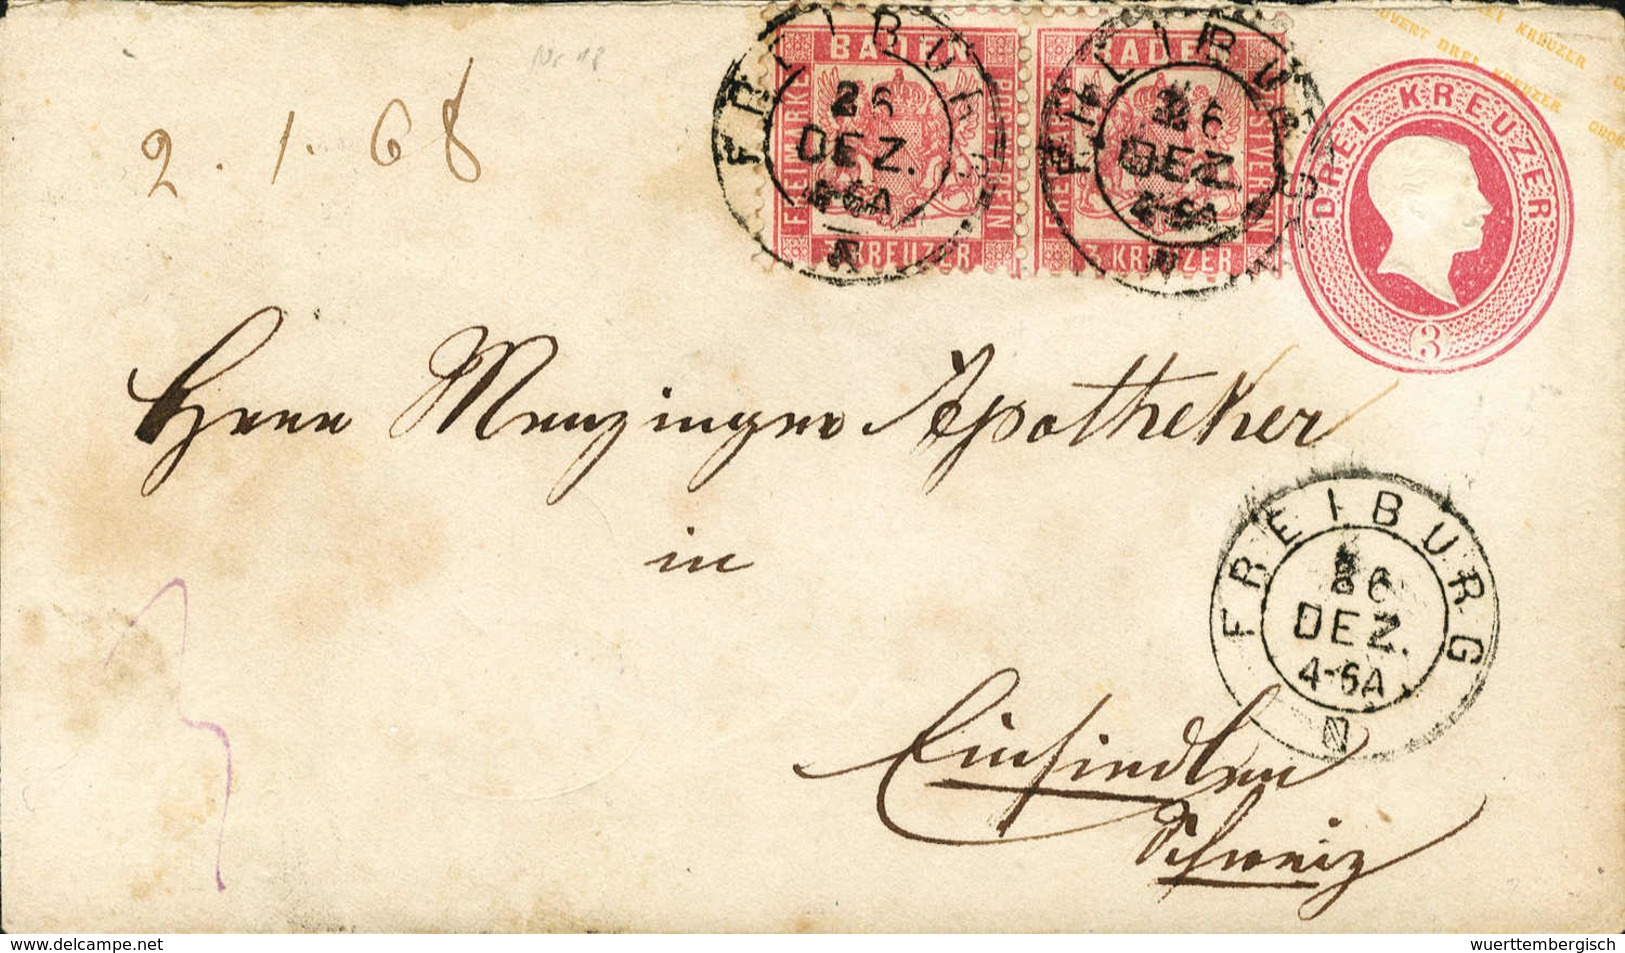 Nr 18
2. 1. 68
FREIBURG
26
DEZ.
4-6A
BADEN
FREIMARKE
POSTVEREIN
3 KREUZER
FREIBURG
26
DEZ.
4-6A
BADEN
FREIMARKE
POSTVEREIN
3 KREUZER
DREI KREUZER
3
Herrn Menzinger Apotheker
in
Einsiedlen
Schweiz
FREIBURG
26
DEZ.
4-6A
delcampe.net
wuerttembergisch